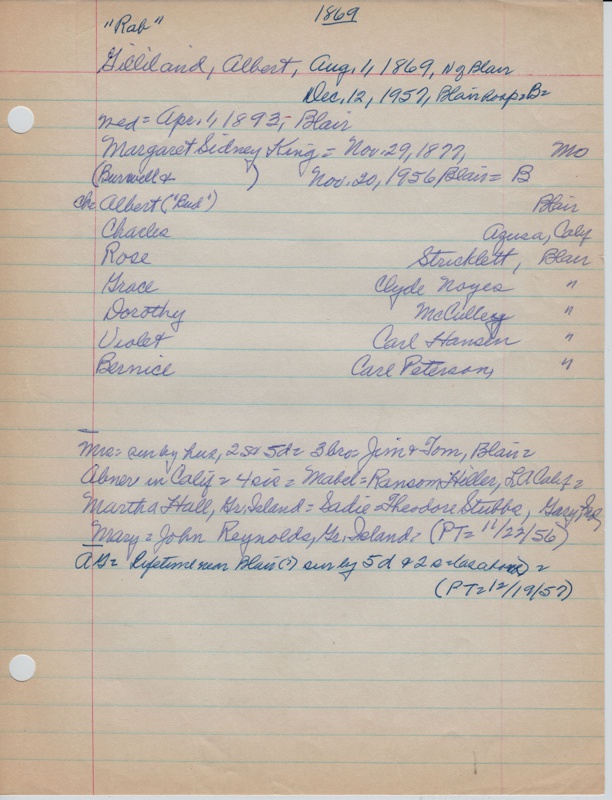 1869
"Rab"
Gilliland, Albert, Aug. 1, 1869, N of Blair
Dec. 12, 1957, Blair Hosp = B =
med = Apr. 1, 1893, Blair
Margaret Sidney King = Nov. 29, 1877, Mo
(Burwell & ) Nov. 20, 1956 Blair = B
Ch: Albert ("Bud") Blair
Charles Azusa, Calif
Rose Stricklett, Blair
Grace Clyde Noyes "
Dorothy McCulley "
Violet Carl Hansen "
Bernice Carl Peterson, "
Mrs = sur by hus, 2 s & 5 d = 3 bro = Jim & Tom, Blair =
Abner in Calif = 4 sis = Mabel = Ransom Hiller, LA Calif =
Martha Hall, Gr. Island = Sadie = Theodore Stubbs, Gary, Ind,
Mary = John Reynolds, Gr. Island = (PT = 11/22/56)
AG = Lifetime near Blair (?) sur by 5 d & 2 s =
(PT = 12/19/57)